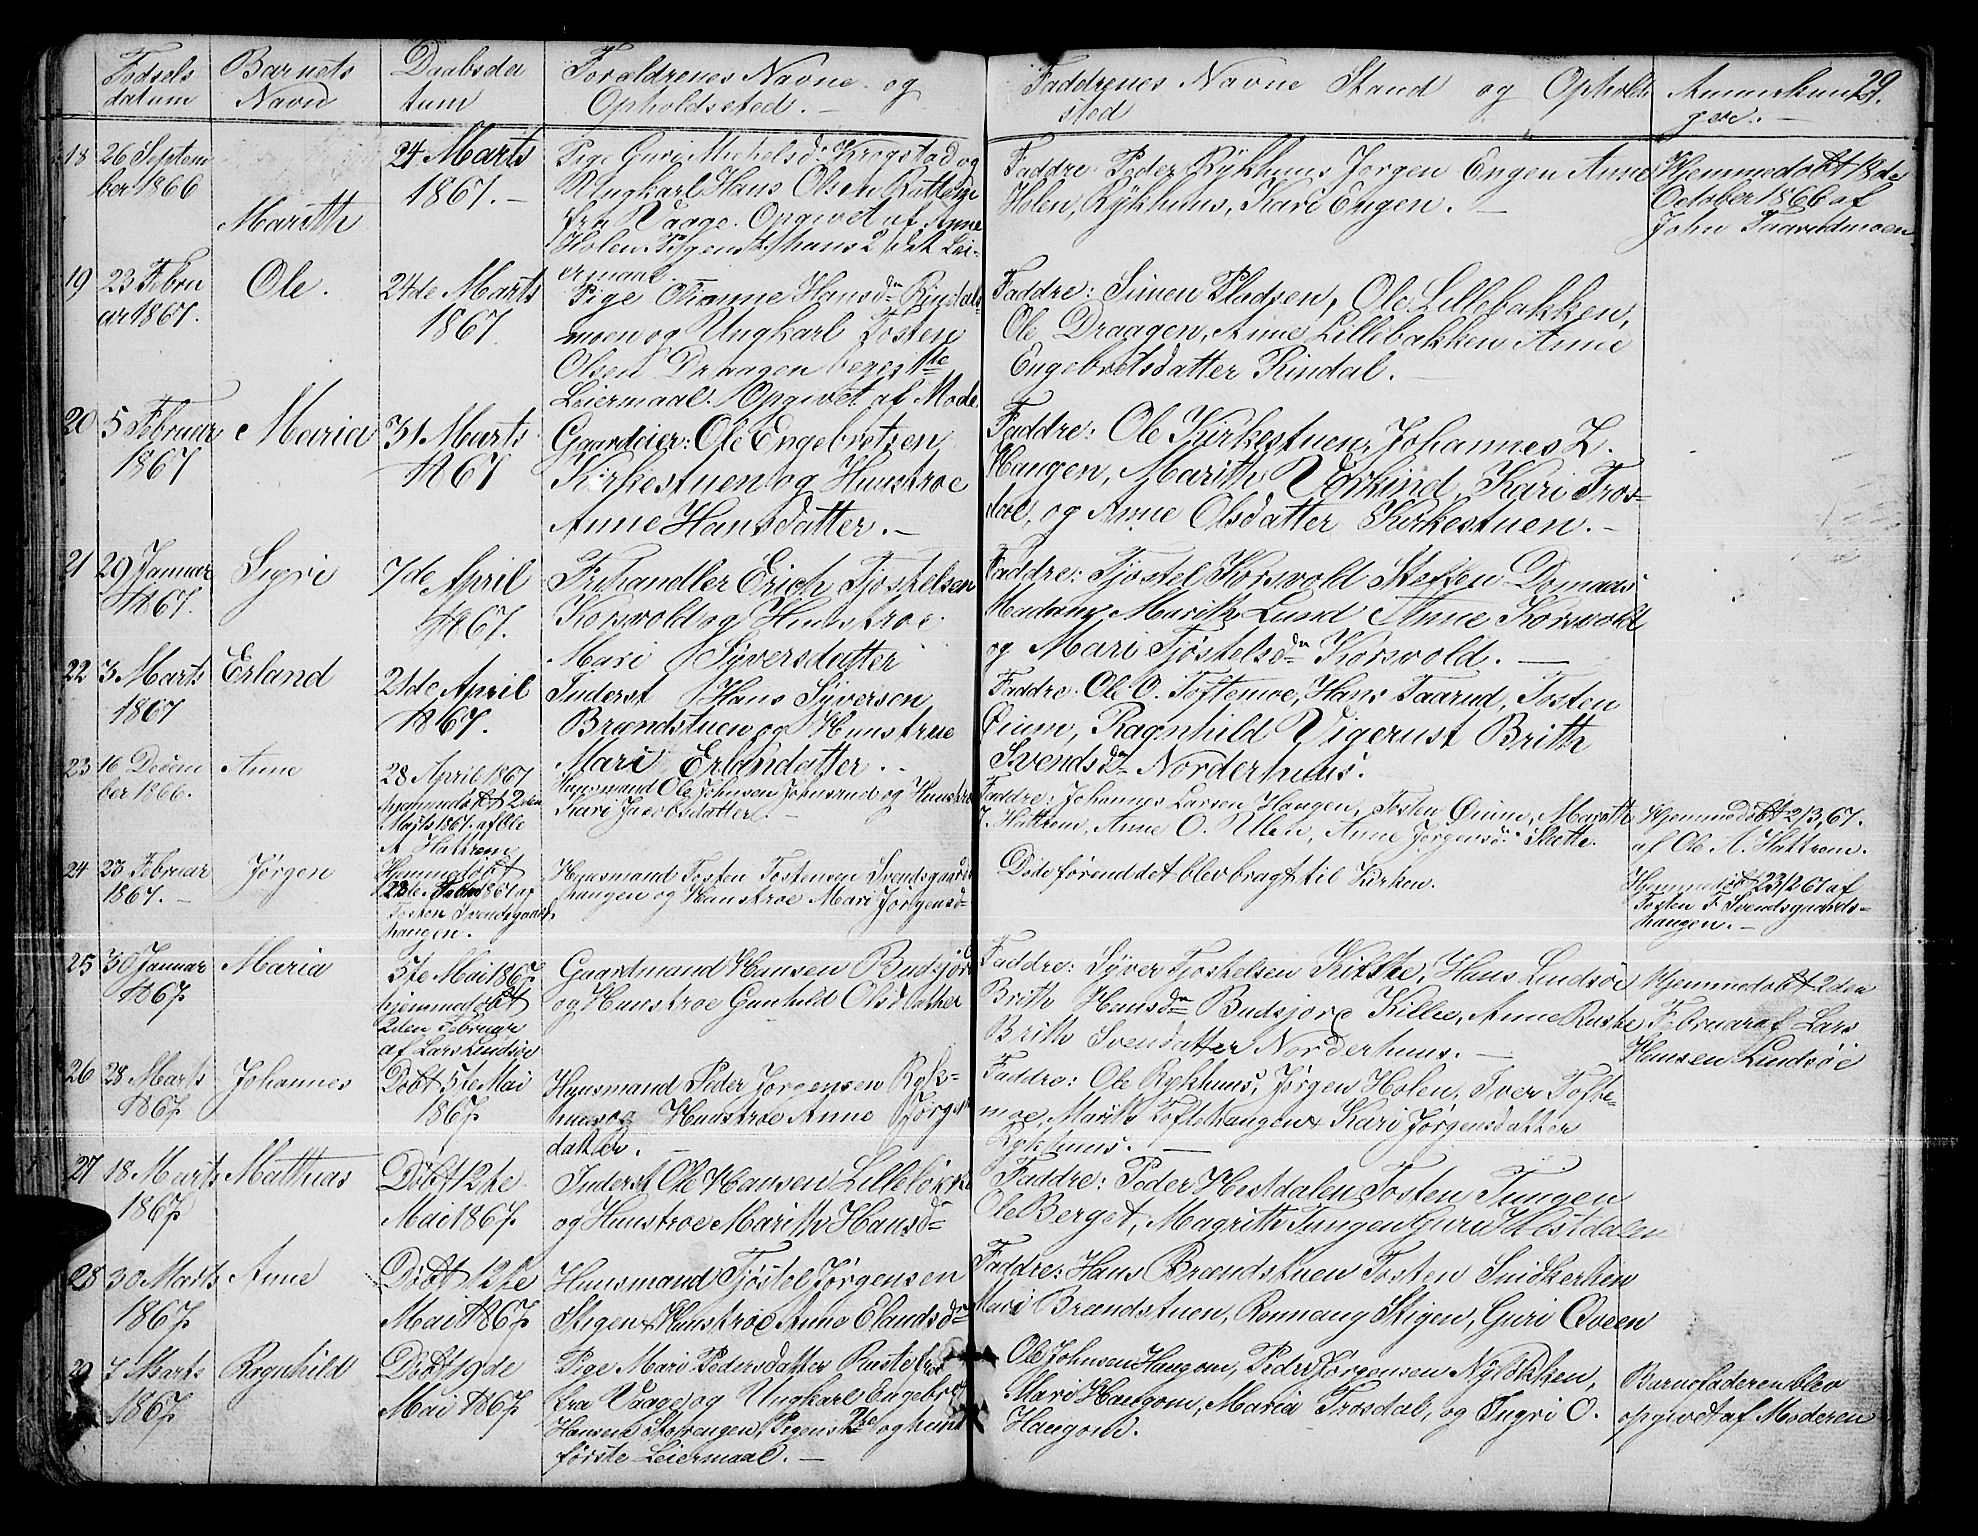 Fødsels Barnets Daabsda Forældrenes Navne og Faddrenes Navne Stand og Ophold Anmerknin 29.
datum Navne tum Opholdssted. — sted ger. —
18 26 Septem
ber 1866
Marith
24 Marts
1867. —
Pige Guri Michelsd. Krogstad og
Ungkarl Hans Olsen
fra Vaage. Opgivet af Anne
Holen Pigens hans 2det Lei-
ermaal. —
Faddre: Peder Rykhuus Jørgen Engen Anne
Holen, Rykhuus, Kari Engen. —
Hjemmedøbt 18de
October 1866 af
John Taarudmoen
19 23 Febru
ar 1867.
Ole.
24de Marts
1867
Pige Olianne Hansdn Rindals
moen og Ungkarl Tosten
Olsen Draagen begges 1ste
Leiermaal. Opgivet af Mode
Faddre: Simen Pladsen, Ole Lillebakken,
Ole Draagen, Anne Lillebakken Anne
Engebretsdatter Rindal. —
20 5 Februar
1867
Maria
31 Marts
1867
Gaardeier: Ole Engebretsen
Kirkestuen og Hunstroe
Anne Hansdatter. —
Faddre: Ole Kirkestuen, Johannes L.
Haugen, Marith Verkind, Kari Tros-
dal, og Anne Olsdatter Kirkestuen. —
21 29 Januar
1867.
Sigri
7de April
1867.
Frihandler Erich Tjøstelsen
Korsvold og Hunstroe
Mari Syversdatter
Faddre: Tjøstel Korsvold Steffen Domaas
Madam Marith Lund Anne Korsvold
og Mari Tjøstelsdn Korsvold. —
22 3 Marts
1867
Erland
21de April
1867.
Inderst Hans Syversen
Brandstuen og Hunstrue
Mari Erlandatter. —
Faddre: Ole O. Toftemoe, Hans Taarud, Tosten
Øium, Ragnhild Vigerust Brith
Svendsdn Norderhuus.
23 16 Decem
ber 1866.
Anne
28 April 1867
hjemmedøbt 2den
Marts 1867. af Ole
A Hattrem
Huusmand Ole Johnsen Johnsrud og Hunstroe
Kari Jacobsdatter. —
Faddre: Johannes Larsen Haugen, Tosten Øium, Marith
J. Hattrem, Anne O. Ulen, Anne Jørgensd. Slette.
Hjemmedøbt 2/3, 67.
af Ole A. Hattrem.
24 23 Februar
1867. —
Jørgen
Hjemmedøbt
23de Febru 1867 af
Tosten Svendsgaards
haugen.
Huusmand Tosten Tostensen Svendsgaards
haugen og Hunstroe Mari Jørgensd.
Døde førend det blev bragt til Kirken.
Hjemmedøbt 23/2 67 af
Tosten T. Svendsgaards-
haugen. —
25 30 Januar
1867
Maria
5te Mai 1867
hjemmedøbt
2den Februar
af Lars Lindsøe
Gaardmand Hansen Budsjor
og Hunstroe Gunhild Olsdatter
Faddre: Syver Tjostelsen Kitthe, Hans Lindsøe
Brith Hansdn Budsjord Killie, Anne Ruste
Brith Svendatter Norderhuus. —
Hjemmedøbt 2den
Februar af Lars
Hansen Lindsøe
26 28 Marts
1867
Johannes
Døbt 5te Mai
1867
Huusmand Peder Jørgensen Ryk-
huus og Hunstroe Anne Jørgens
datter. —
Faddre: Ole Rykhuus, Jørgen Holen, Iver Tofte-
moe, Marith Toftehaugen & Kari Jørgensdatter
Rykhuus. —
27 18 Marts
1867
Matthias
Døbt 12te
Mai 1867.
Inderst Ole Hansen Lilleløkke
og Hunstroe Marith Hansd
Faddre: Peder Hestdalen Tosten Tungen
Ole Berget, Magrith Tungen Guri Hestdalen
28 30 Marts
1867
Anne
Døbt 12te
Mai 1867
Huusmand Tjøstel Jørgensen
Stigen & Hunstroe Anne Elandsdn
Faddre: Hans Brandstuen Tosten Snidkerhen
Mari Brandstuen, Ronnaug Stigen, Guri Qveen
29 7 Marts
1867
Ragnhild
Døbt 19de
Mai 1867
Pige Mari Pedersdatter
fra Vaage og Ungkarl Engebret
Hansen Storengen, Pigens 2de og hans
første Leiermaal. —
Ole Johnsen Haugom, Peder Jørgensen Nyløkken,
Mari Haugom, Maria Trosdal, og Ingri O.
Haugom.
Barnefaderen blev
opgivet af Moderen